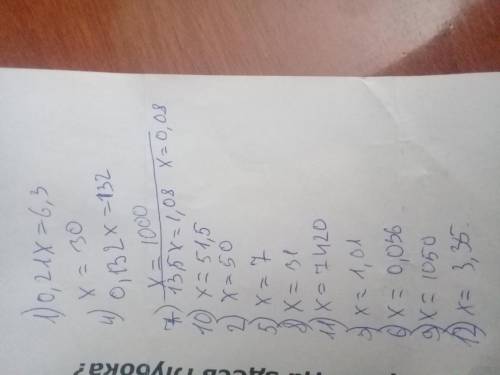 1) 0,21x=6,3
x = 30
4) 0,132x=132
x = 1000
7) 13,5x=1,08 x=0,08
10) x=51,5
2) x=50
5) x=7
8) x=31
11) x=7420
3) x=1,01
6) x=0,036
9) x=1050
12) x= 3,35.
здесь глубока?